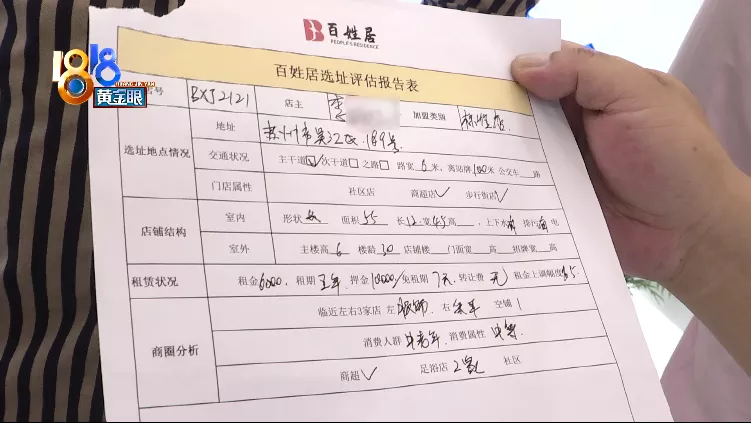 百姓居
PEOPLE'S RESIDENCE
1818
黄金眼
百姓居选址评估报告表
号 BXJ2121 店主 李 加盟类别 标准店
选址地点情况
地址 苏州市吴江区 189号
交通状况 主干道☑次干道□之路□ 路宽6米,离站牌100米 公交车 路
门店属性 社区店 商超店✓ 步行街店✓
店铺结构
室内 形状 面积55 长12.宽4.5高 ,上下水 排污 电
室外 主楼高6 楼龄30 店铺楼 门面宽 高 招牌宽 高
租赁状况 租金6000,租期 年,押金10000/免租期 7天,转让费 无 租金上调幅度 5
商圈分析
临近左右3家店 左 右 空铺 1
消费人群 中老年,消费属性 中等
商超✓ 足浴店 2家 社区